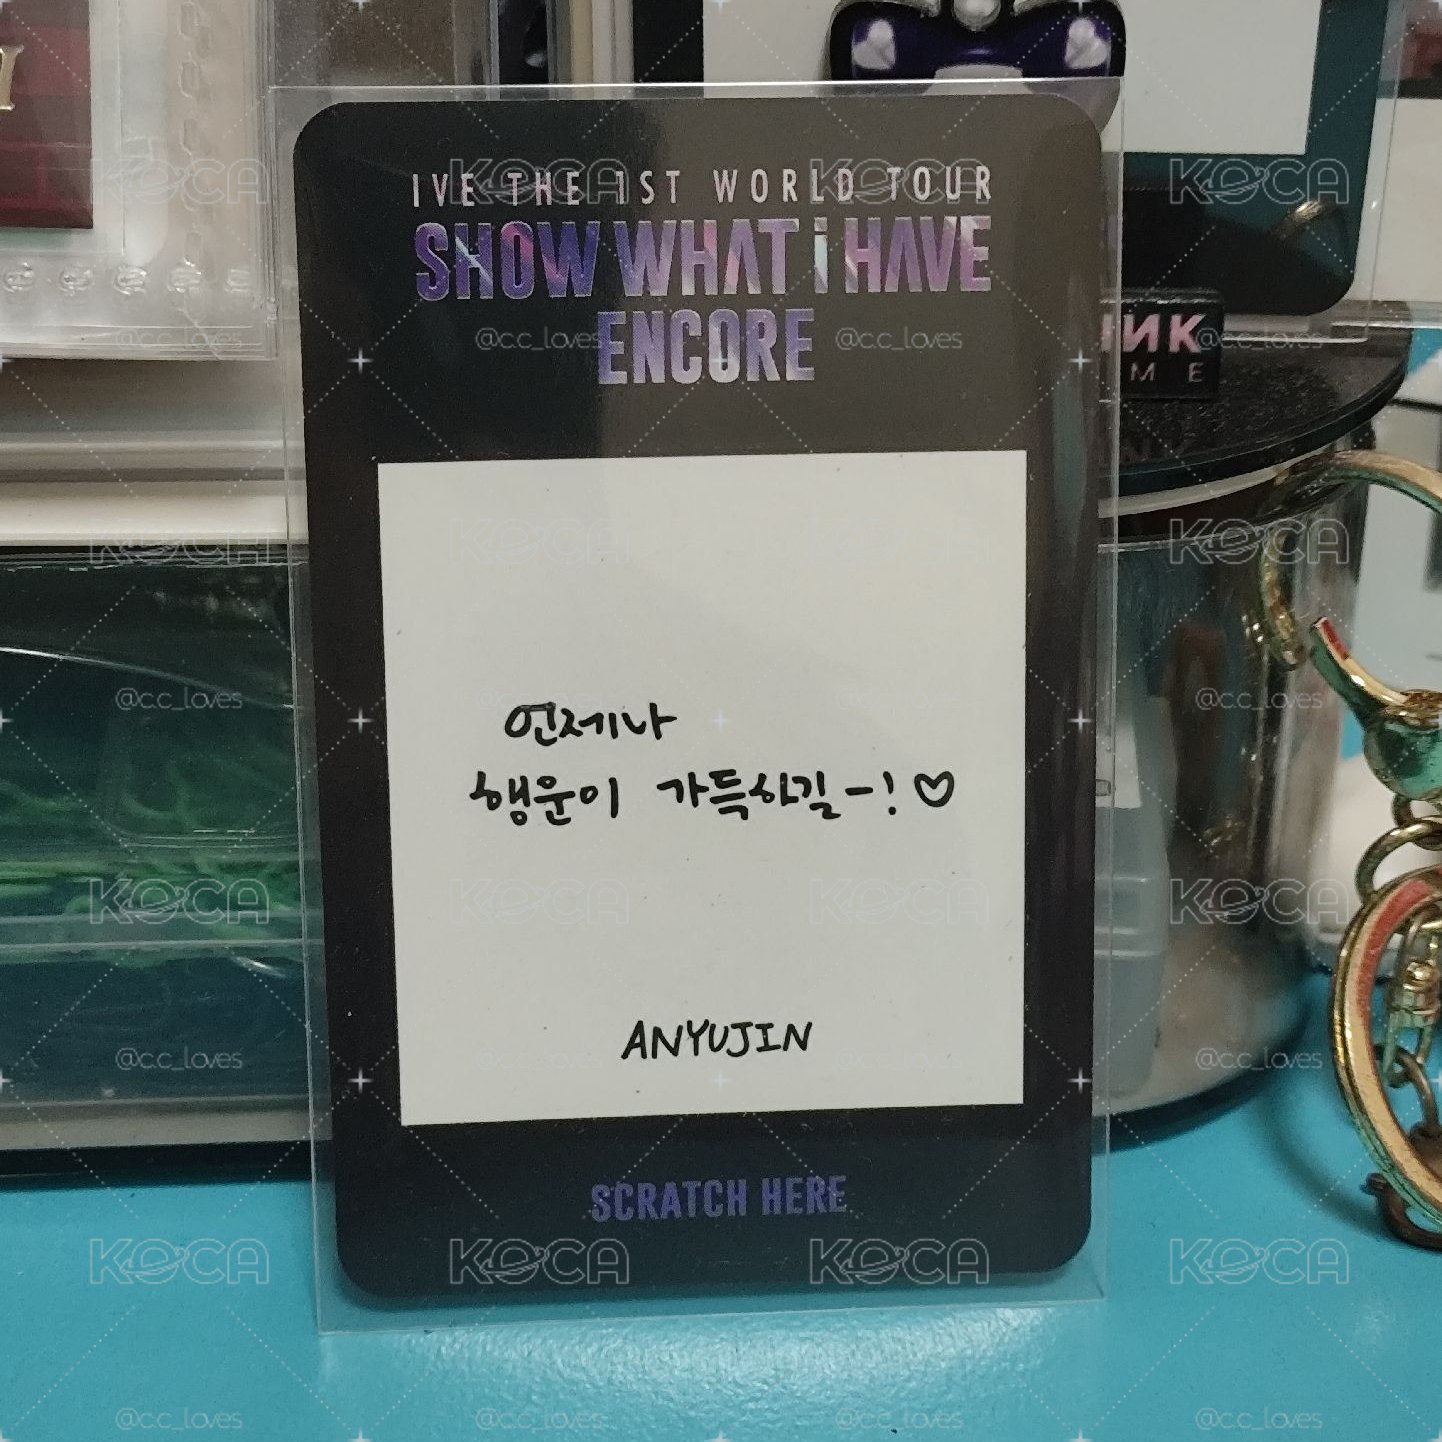 IVE THE 1ST WORLD TOUR
SHOW WHAT i HAVE
ENCORE
언제나
행운이 가득하길-!♡
ANYUJIN
SCRATCH HERE
KOCA
@c.c_loves